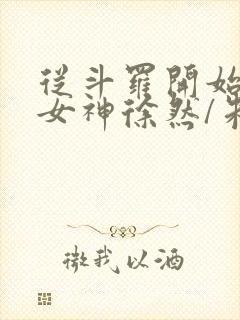 從斗羅開始
女神徐然/
微我以酒